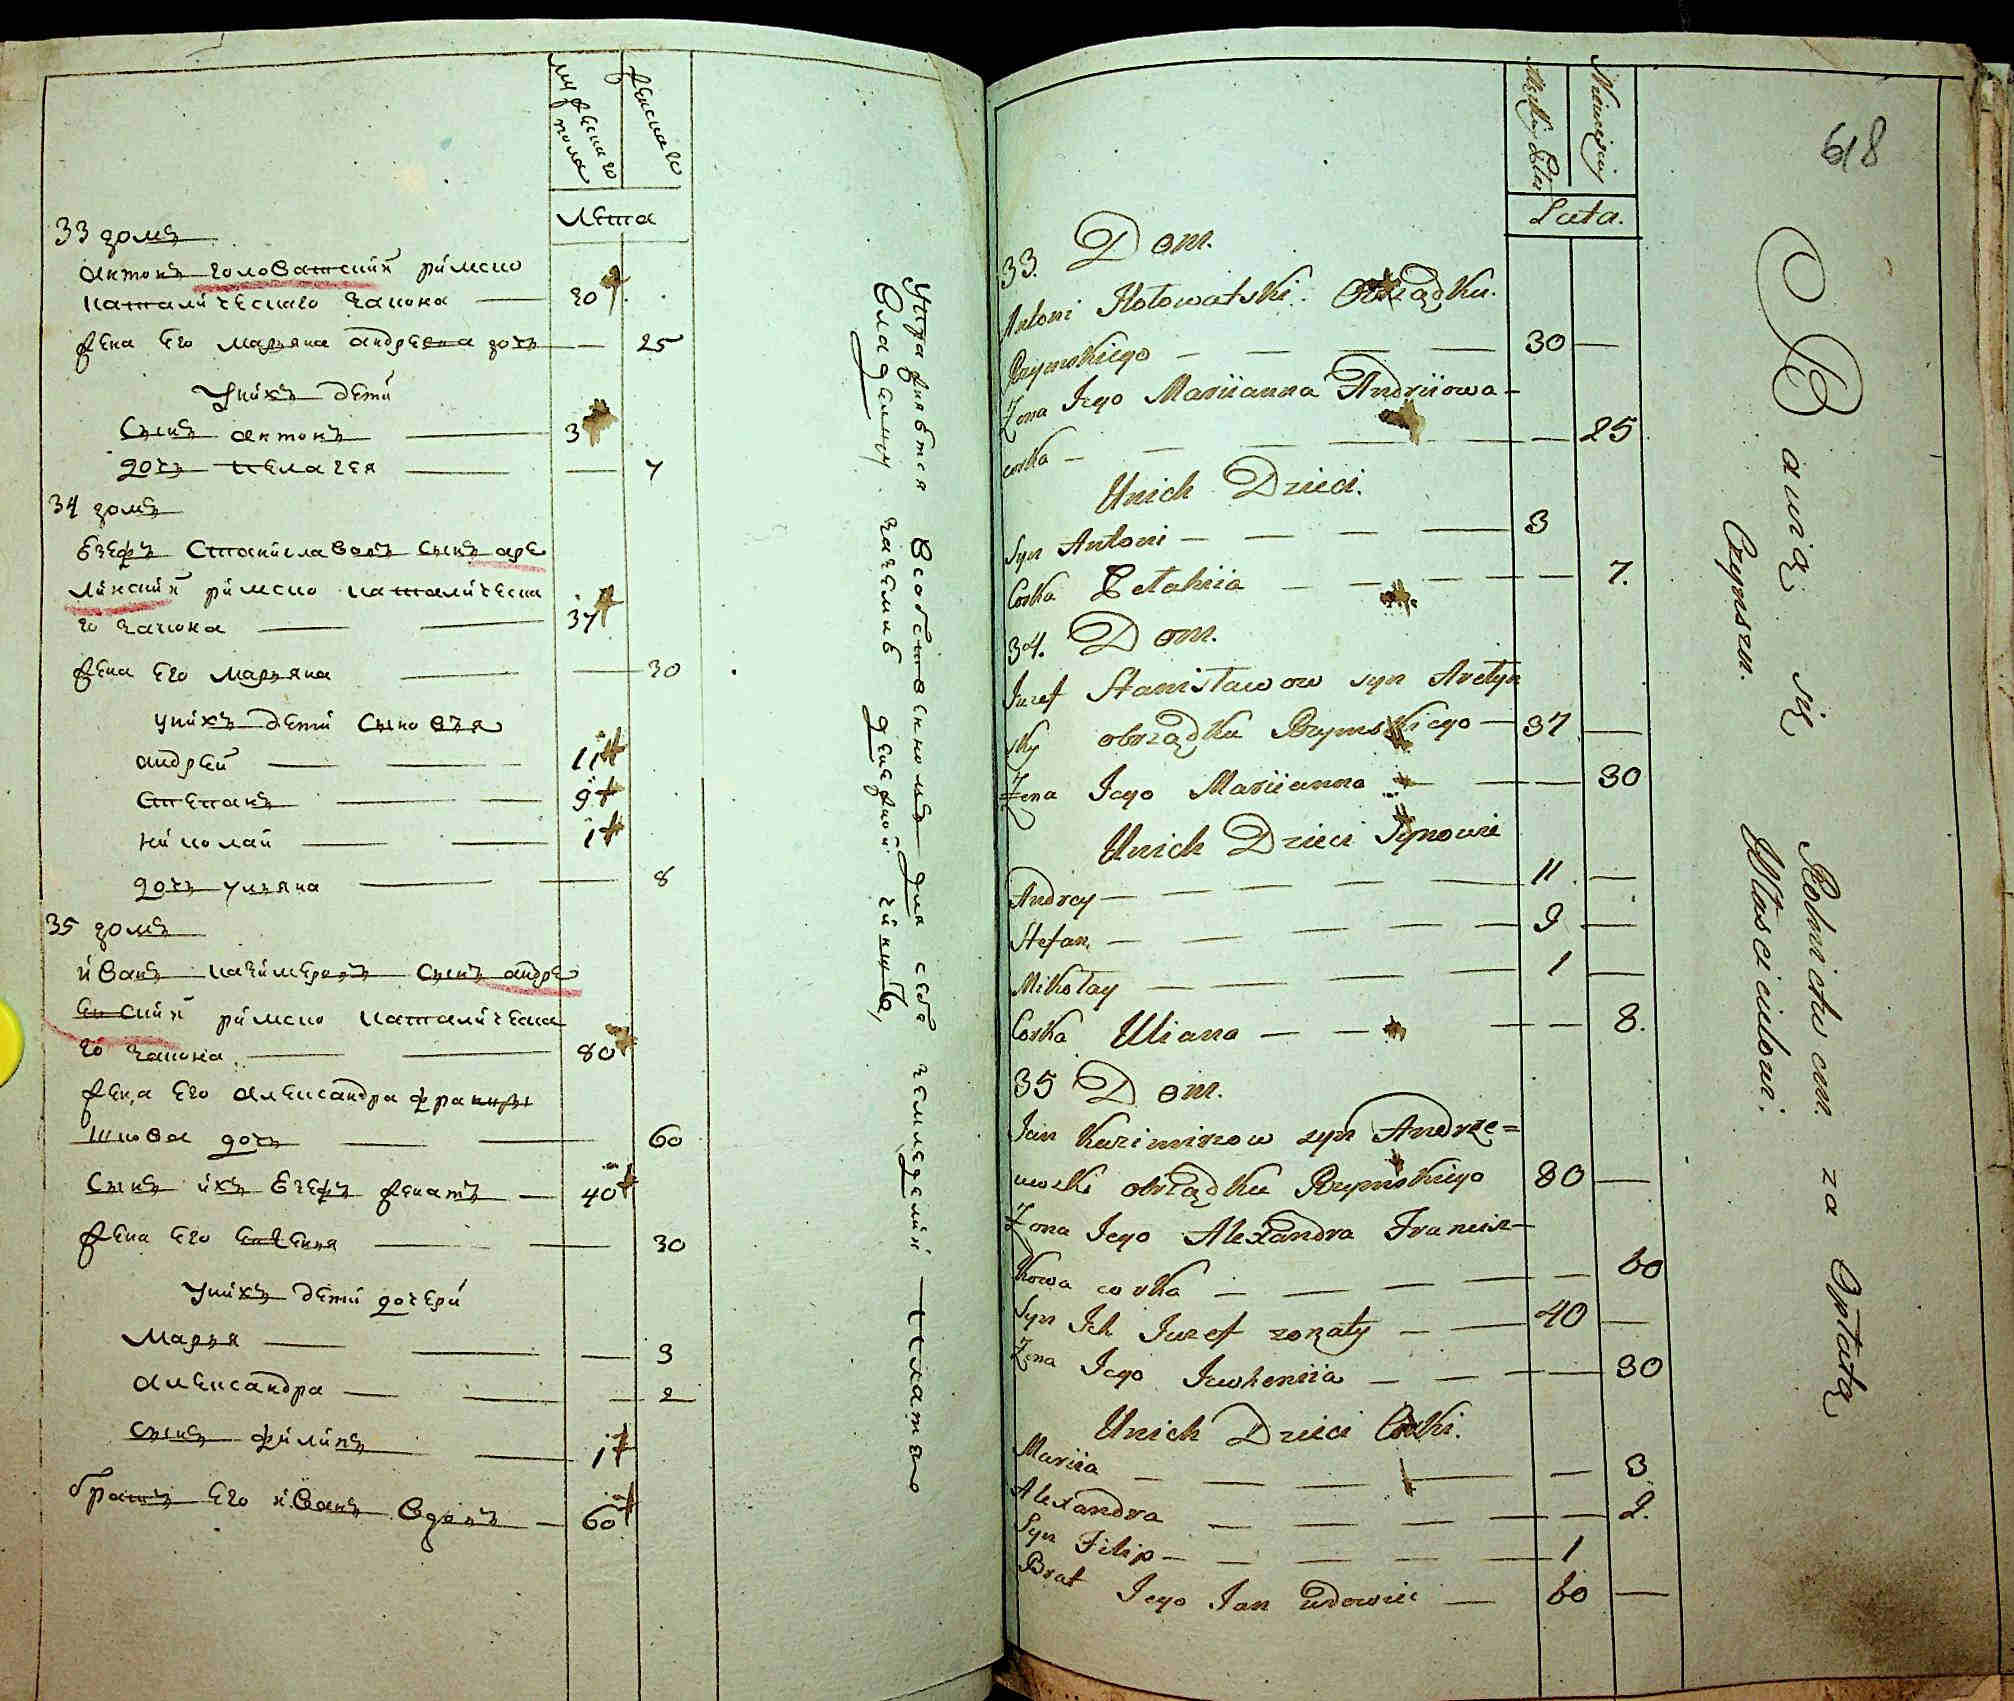 мужескаго пола
женскаго
лета
33 домъ
антонъ головатский римско
каталическаго закона — 30
жена его марьяна андреева дочь — 25
у нихъ дети
Сынъ антонъ — 3
дочь пелагея — 7
34 домъ
езефъ Станиславовъ сынъ аре
линский римско каталическа
го закона — 37
жена его марьяна — 30
у нихъ дети сыновья
андрей — 11
Степанъ — 9
николай — 1
дочь ульяна — 8
35 домъ
иванъ казимеровъ сынъ андре
евский римско каталическа
го закона — 80
жена его александра францы
шкова дочь — 60
Сынъ ихъ езефъ женатъ — 40
жена его евгения — 30
у нихъ дети дочери
Марья — 3
александра — 2
сынъ филипъ — 1
братъ его иванъ вдовъ — 60
упражняются в собственномъ для себя земледелии платею
владелцу
618
Męzkiey Płci
Niewieściey
Lata.
33. Dom.
Antoni Hołowatski. Obrządku.
Rzymskiego — 30 —
Żona Jego Mariianna Andriiowa
corka — 25
Unich Dzieci.
Syn Antoni — 3
Corka Pełahiia — 7.
34. Dom.
Juzef Stanisławow syn Arelyn
sky obrządku Rzymskiego — 37 —
Żona Jego Mariianna — 30
Unich Dzieci Synowie
Andrey — 11 —
Stefan — 9 —
Mikołay — 1 —
Corka Uliana — 8.
35 Dom.
Jan Kazimirzow syn Andrze=
iewski obrządku Rzymskiego 80 —
Żona Jego Alexandra Francisz-
kowa corka — 60
Syn Ich Juzef żonaty — 40 —
Żona Jego Jewheniia — 30
Unich Dzieci Corki.
Mariia — 3
Alexandra — 2.
Syn Filip — 1
Brat Jego Jan wdowiec — 60 —
Bawią się Rolnictwem. za Opłatą
Czynszu. Włascicielowi.